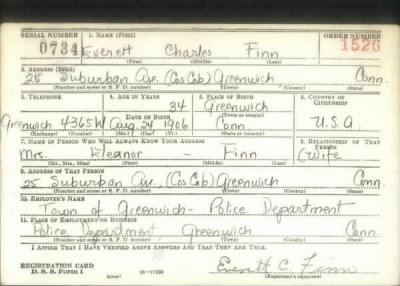 SERIAL NUMBER 1. NAME (Print) ORDER NUMBER
0734 Everett Charles Finn 1526
(First) (Middle) (Last)
2. ADDRESS (Print)
25 Suburban Ave. (Cos Cob) Greenwich Conn.
(Number and street or R. F. D. number) (Town) (County) (State)
3. TELEPHONE 4. AGE IN YEARS 5. PLACE OF BIRTH 6. COUNTRY OF CITIZENSHIP
34 Greenwich
DATE OF BIRTH (Town or county)
Greenwich 4365W Aug. 24 1906 Conn. U.S.A
(Exchange) (Number) (Mo.) (Day) (Yr.) (State or country)
7. NAME OF PERSON WHO WILL ALWAYS KNOW YOUR ADDRESS 8. RELATIONSHIP OF THAT PERSON
Mrs. Eleanor - Finn (Wife)
(Mr., Mrs., Miss) (First) (Middle) (Last)
9. ADDRESS OF THAT PERSON
25 Suburban Ave. (Cos Cob) Greenwich Conn.
(Number and street or R. F. D. number) (Town) (County) (State)
10. EMPLOYER'S NAME
Town of Greenwich - Police Department
11. PLACE OF EMPLOYMENT OR BUSINESS
Police Department, Greenwich Conn.
(Number and street or R. F. D. number) (Town) (County) (State)
I AFFIRM THAT I HAVE VERIFIED ABOVE ANSWERS AND THAT THEY ARE TRUE.
REGISTRATION CARD Everett C. Finn
D. S. S. Form 1 (over) 16—17105 (Registrant's signature)